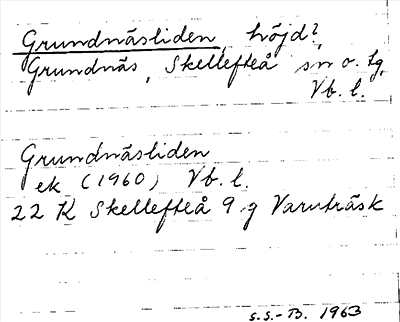 Grundnäsliden, höjd?,
Grundnäs, Skellefteå sn o. tg,
Vb. l.
Grundnäsliden
ek (1960) Vb. l.
22 K Skellefteå 9 g Varuträsk
S.S.-B. 1963